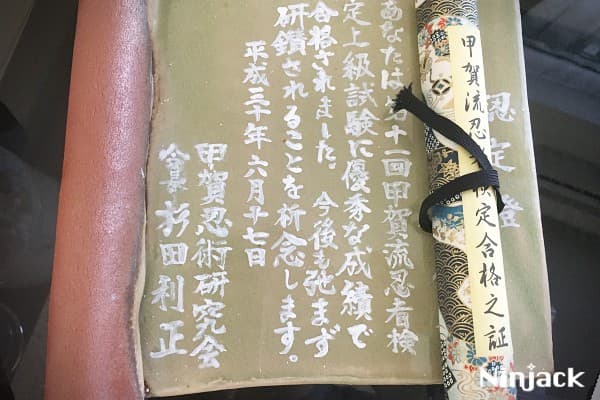 認定證
甲賀流忍者検定合格之証
あなたは第十一回甲賀流忍者検
定上級試験に優秀な成績で
合格されました。今後も弛まず
研鑽されることを祈念します。
平成三十年六月十七日
甲賀忍術研究会
会長 杉田利正
Ninjack